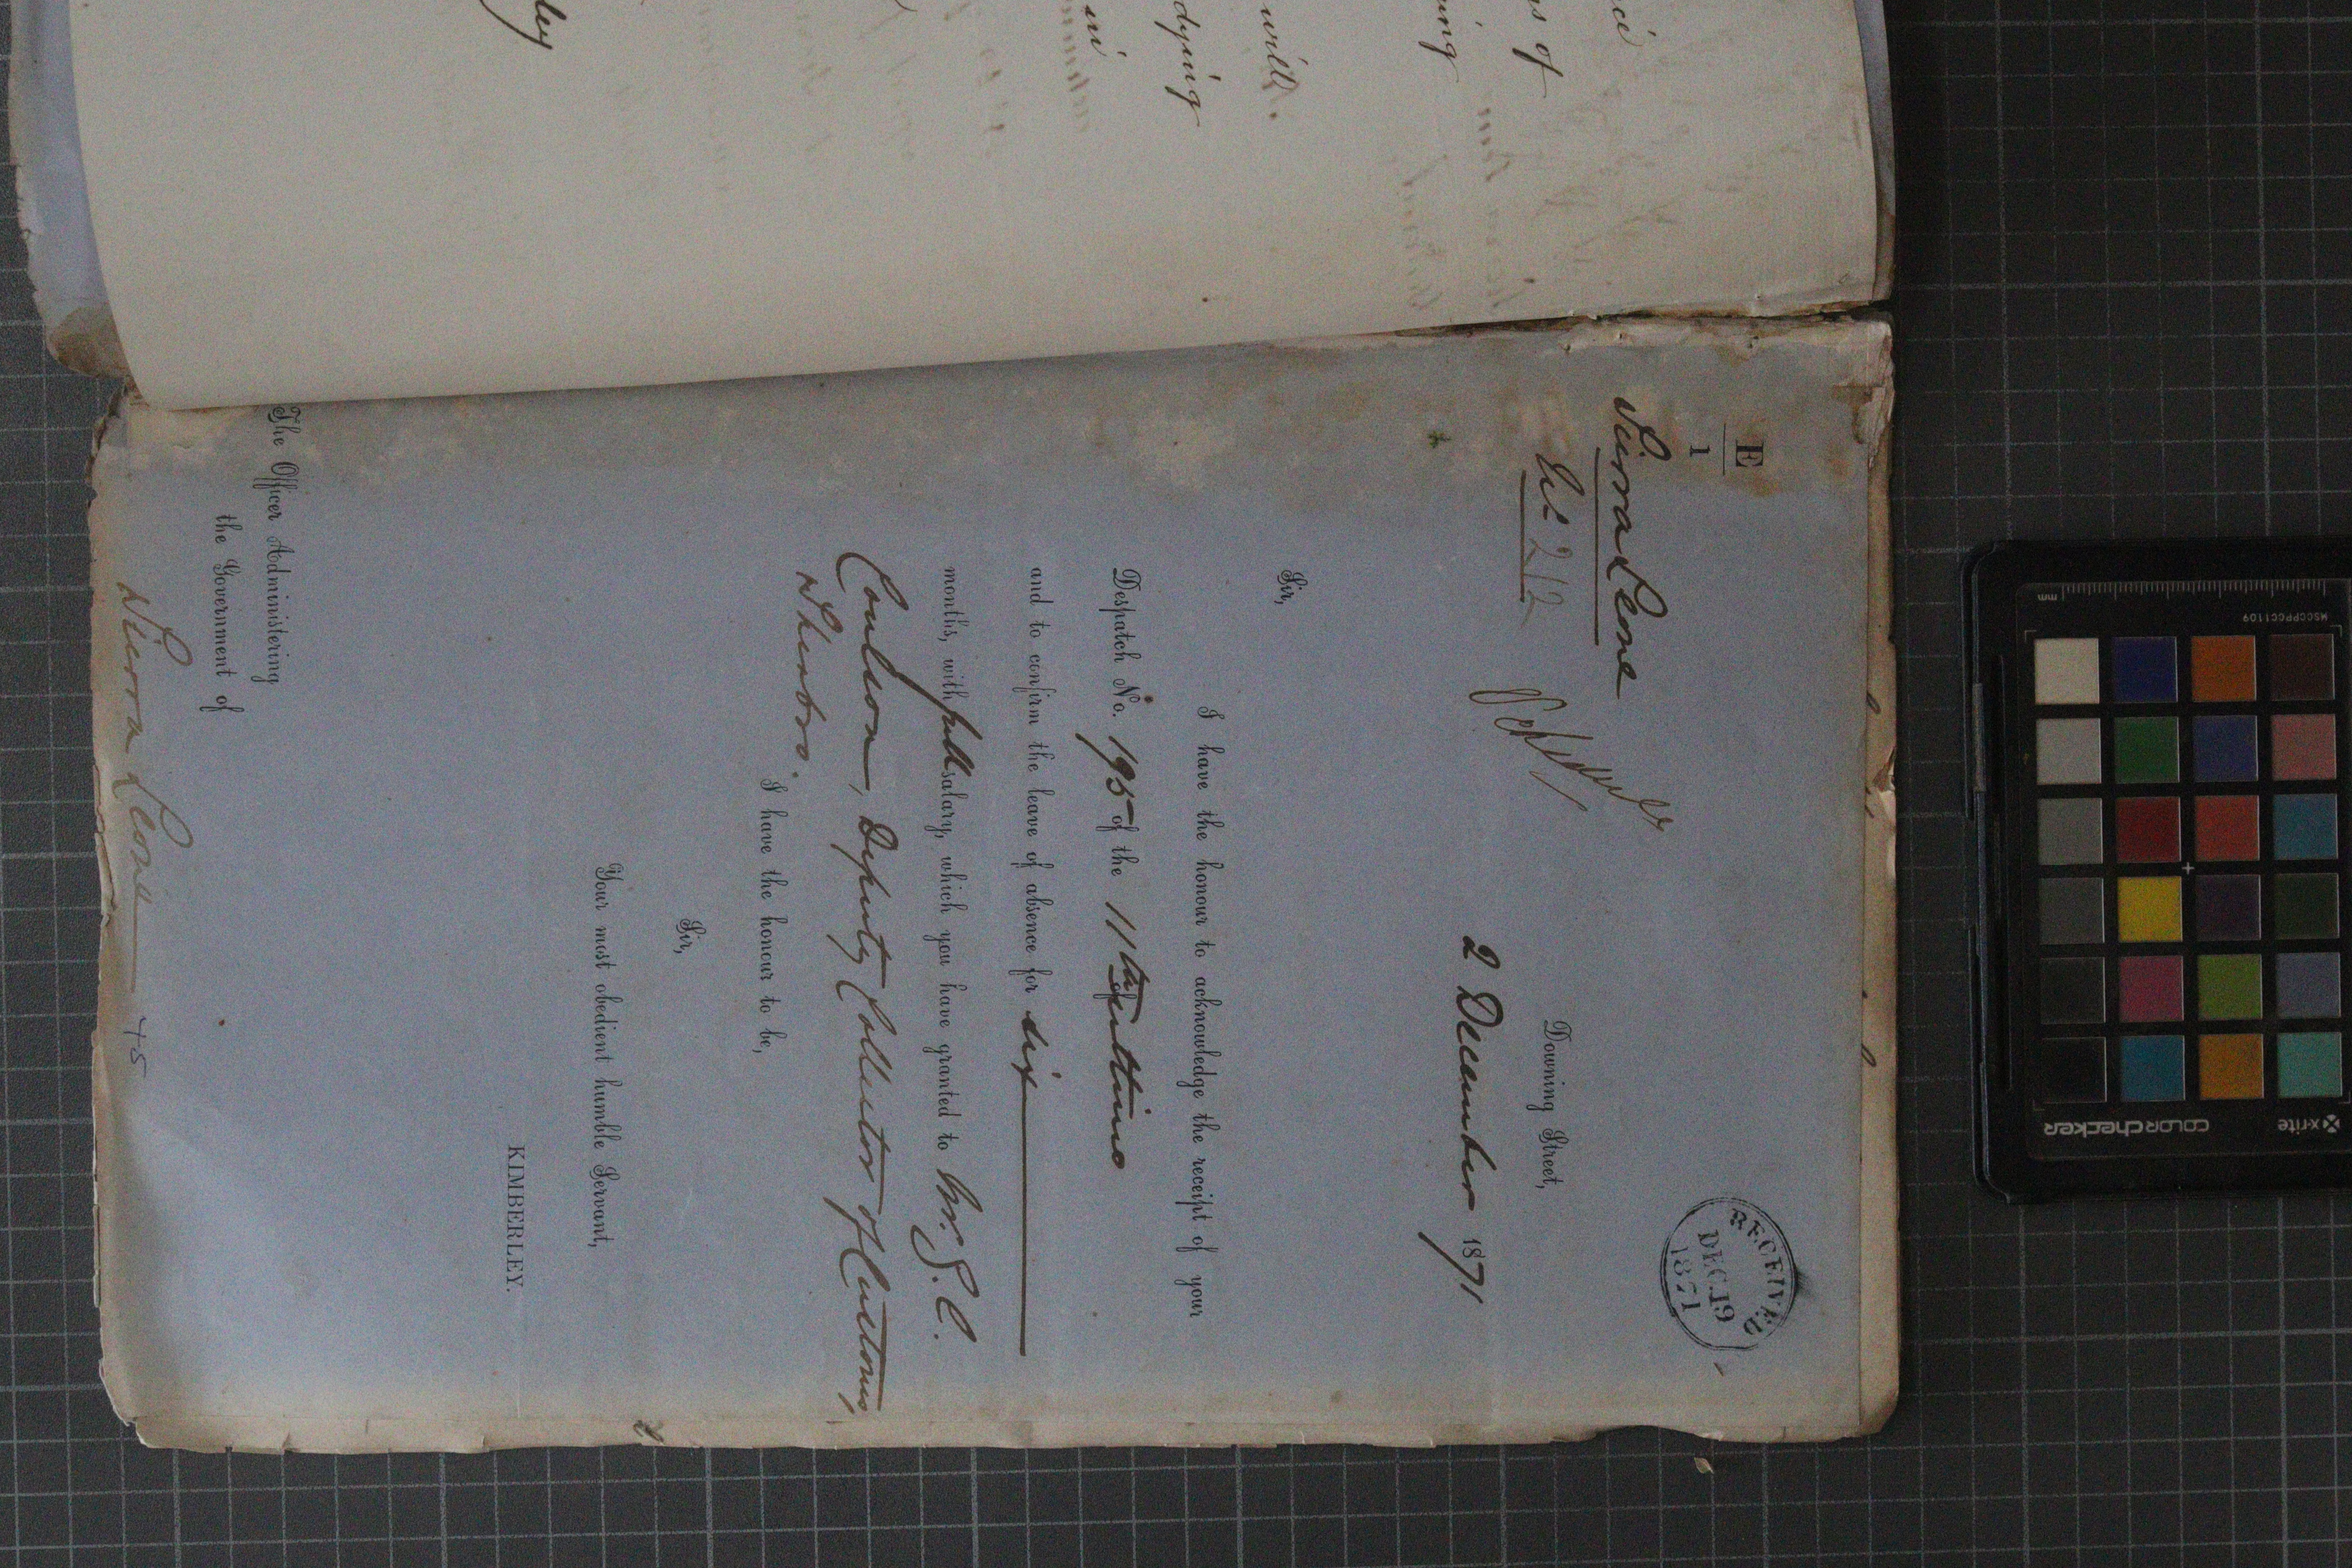 E
1
Sierra Leone
No. 212
RECEIVED
DEC. 19
1871
Downing Street,
2 December 1871
Sir,
I have the honour to acknowledge the receipt of your
Despatch No. 195 of the 11th Ultimo
and to confirm the leave of absence for six
months, with full salary, which you have granted to Mr. J. C.
Coulson, Deputy Collector of Customs,
Sherbro.
I have the honour to be,
Sir,
Your most obedient humble Servant,
KIMBERLEY.
The Officer Administering
the Government of
Sierra Leone
45
of
ing
will.
dying
in
ley
x-rite
COLORchecker
MSCCPPCC1109
mm